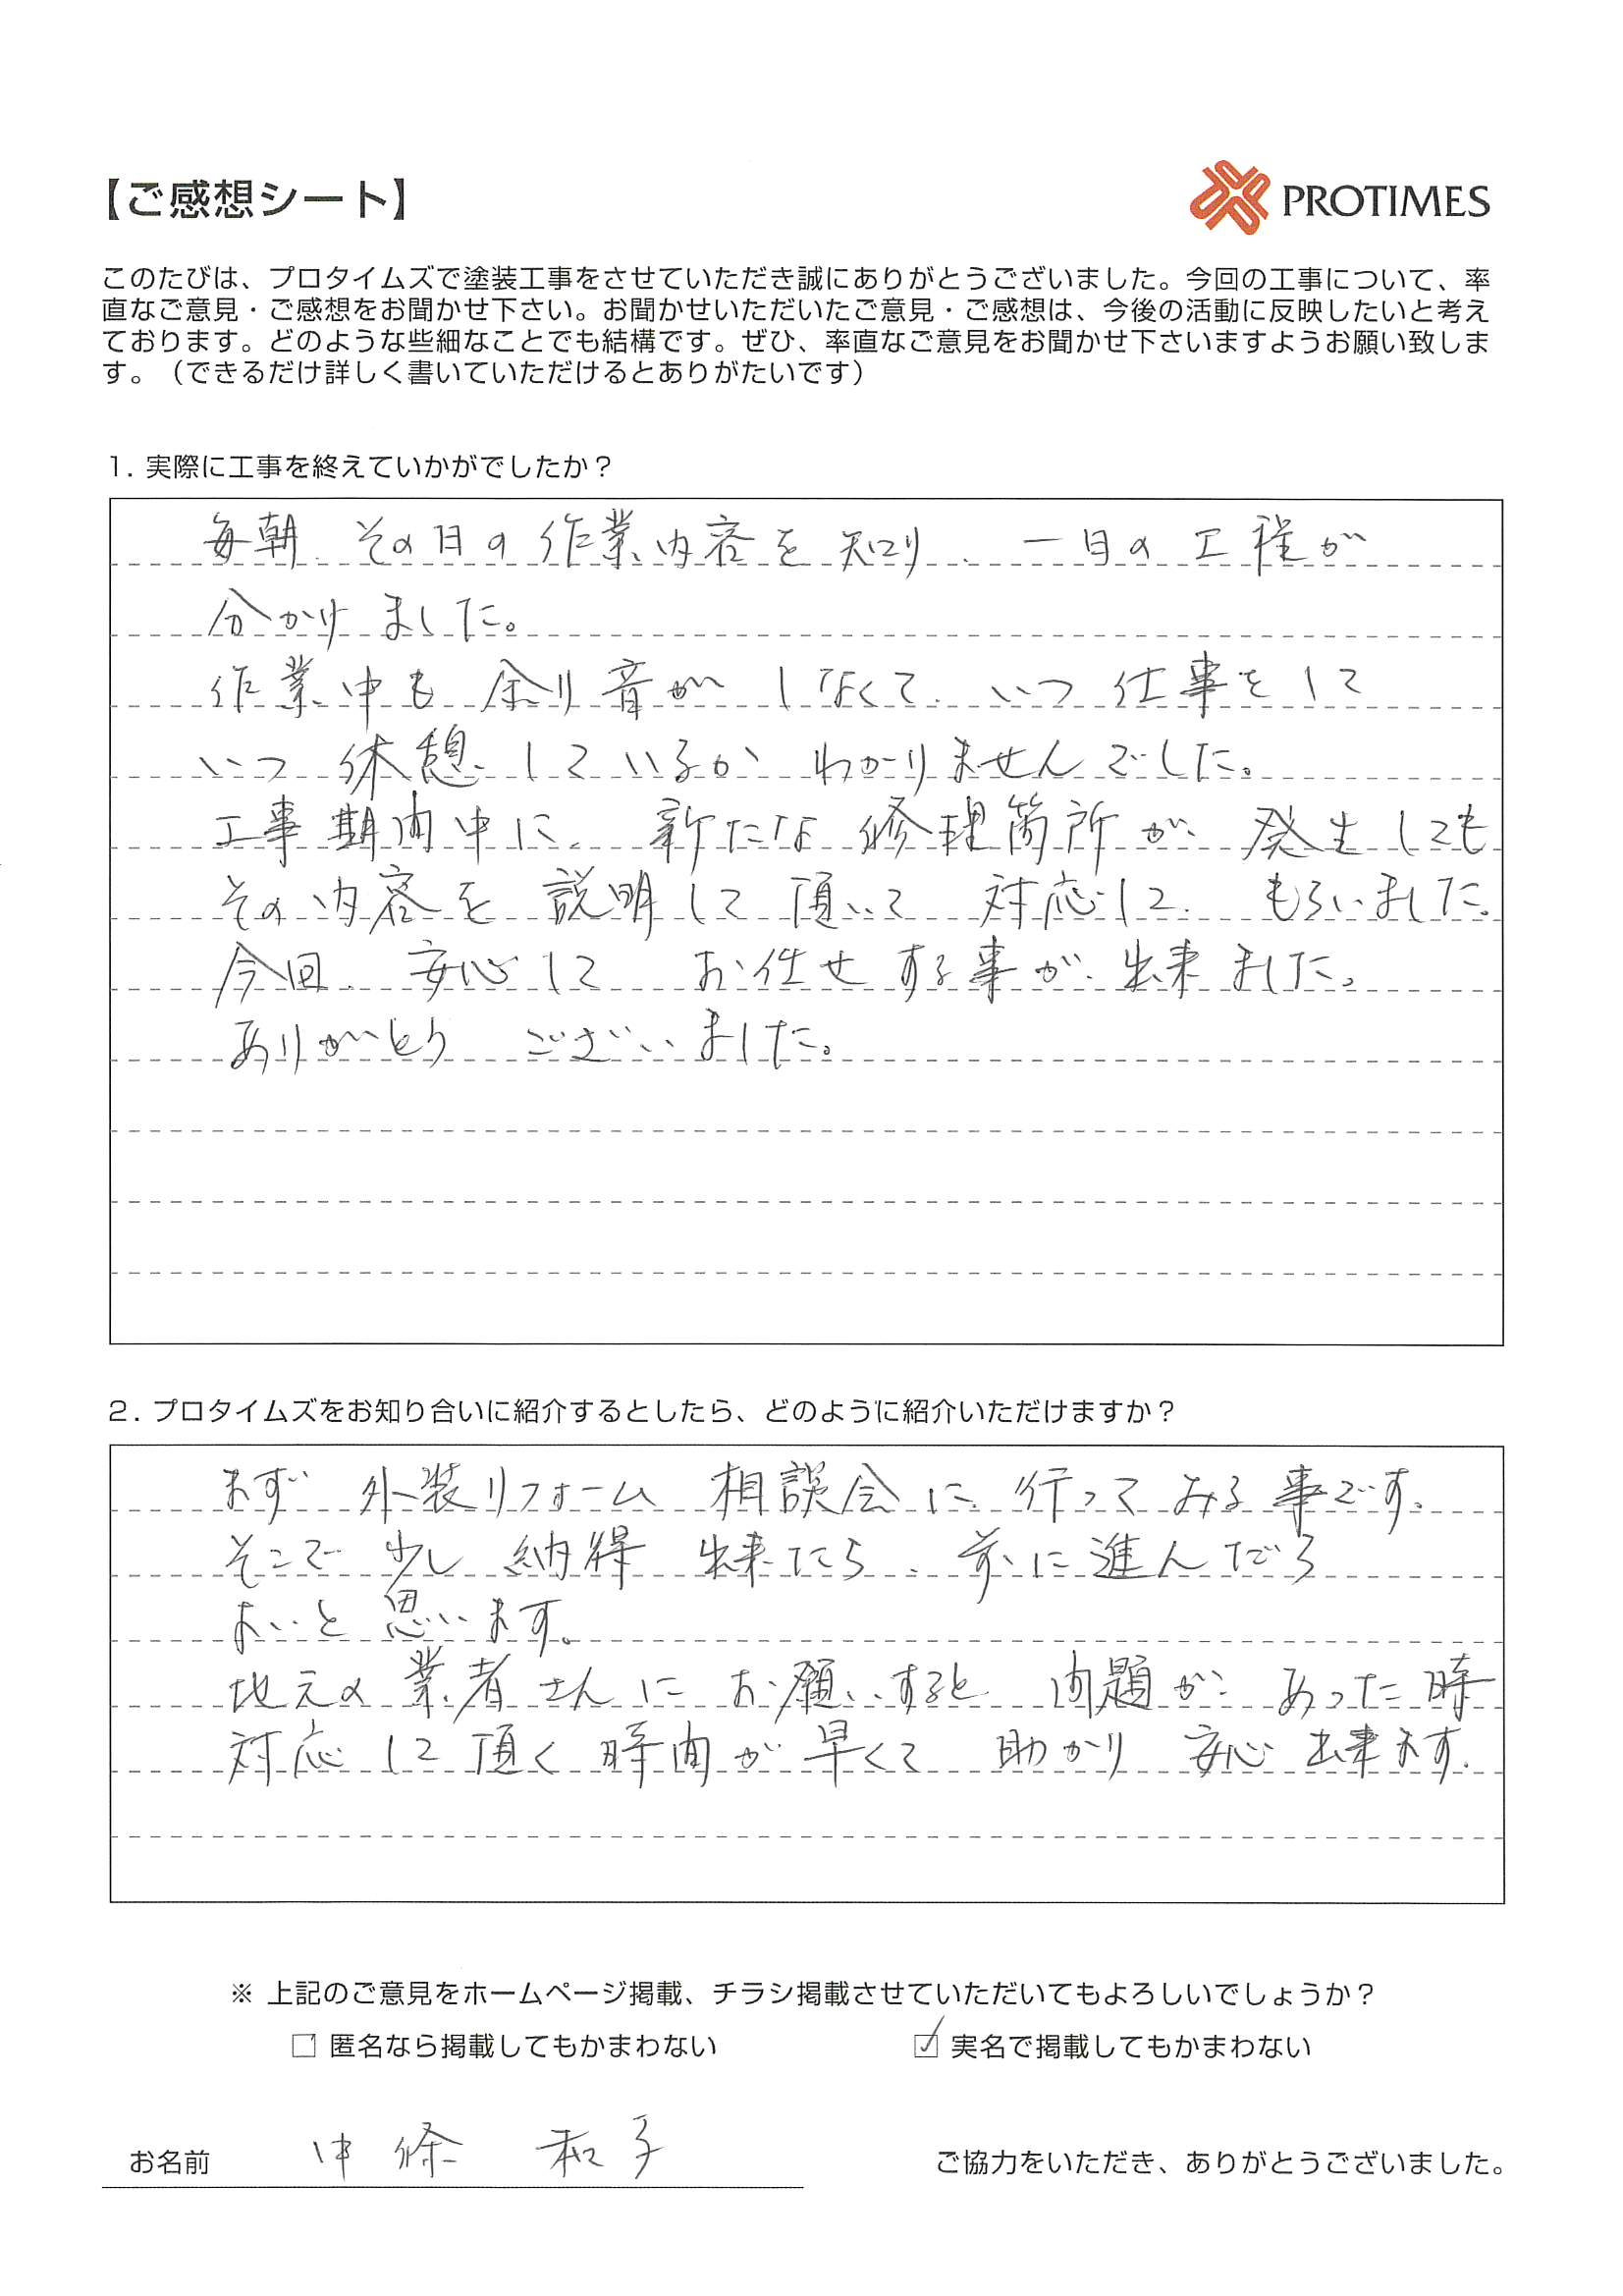 【ご感想シート】
PROTIMES
このたびは、プロタイムズで塗装工事をさせていただき誠にありがとうございました。今回の工事について、率
直なご意見・ご感想をお聞かせ下さい。お聞かせいただいたご意見・ご感想は、今後の活動に反映したいと考え
ております。どのような些細なことでも結構です。ぜひ、率直なご意見をお聞かせ下さいますようお願い致しま
す。（できるだけ詳しく書いていただけるとありがたいです）
1. 実際に工事を終えていかがでしたか？
毎朝、その日の作業内容を知り、一日の工程が
分かりました。
作業中も余り音がしなくて、いつ仕事をして
いつ休憩しているかわかりませんでした。
工事期間中に、新たな修理箇所が発生しても
その内容を説明して頂いて対応して、もらいました。
今回、安心してお任せする事が出来ました。
ありがとうございました。
2. プロタイムズをお知り合いに紹介するとしたら、どのように紹介いただけますか？
まず外装リフォーム相談会に行ってみる事です。
そこで少し納得出来たら、前に進んだら
よいと思います。
地元の業者さんにお願いすると問題があった時
対応して頂く時間が早くて助かり安心出来ます。
※ 上記のご意見をホームページ掲載、チラシ掲載させていただいてもよろしいでしょうか？
□ 匿名なら掲載してもかまわない ☑ 実名で掲載してもかまわない
お名前 中條 和子 ご協力をいただき、ありがとうございました。